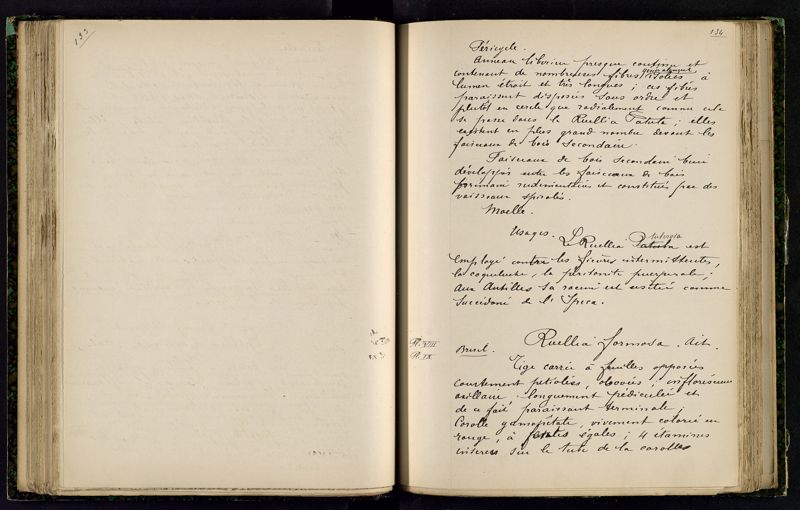 133
134
Péricycle.
Anneau libérien presque continu et
contenant de nombreuses fibres généralement isolées à
lumen étroit et très longues ; ces fibres
paraissent disposées sans ordre et
plutôt en cercle que radialement comme cela
se passe dans le Ruellia Patula ; elles
existent en plus grand nombre devant les
faisceaux de bois secondaire.
Faisceaux de bois secondaire bien
développés entre les faisceaux de bois
primaire rudimentaires et constitués par des
vaisseaux spiralés.
Moelle.
Usages. Le Ruellia Patula tuberosa est
employé contre les fièvres intermittentes,
la coqueluche, la péritonite puerpérale ;
aux Antilles sa racine est usitée comme
succédané de l'Ipeca.
Pl. VIII
Pl. IX
Brésil. Ruellia formosa. Ait.
Tige carrée à feuilles opposées
courtement petiolées, obovées ; inflorescence
axillaire longuement pédiculée et
de ce fait paraissant terminale.
Corolle gamopétale, vivement colorée en
rouge, à égales ; 4 étamines
insérées sur le tube de la corolle